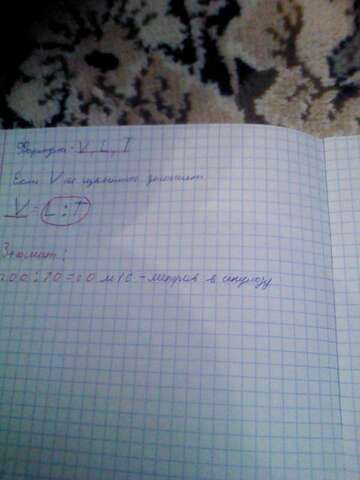 Формула: V, L, T
Если V не 
V = L : T
Значит:
200:10=20 м/с - метров в секунду